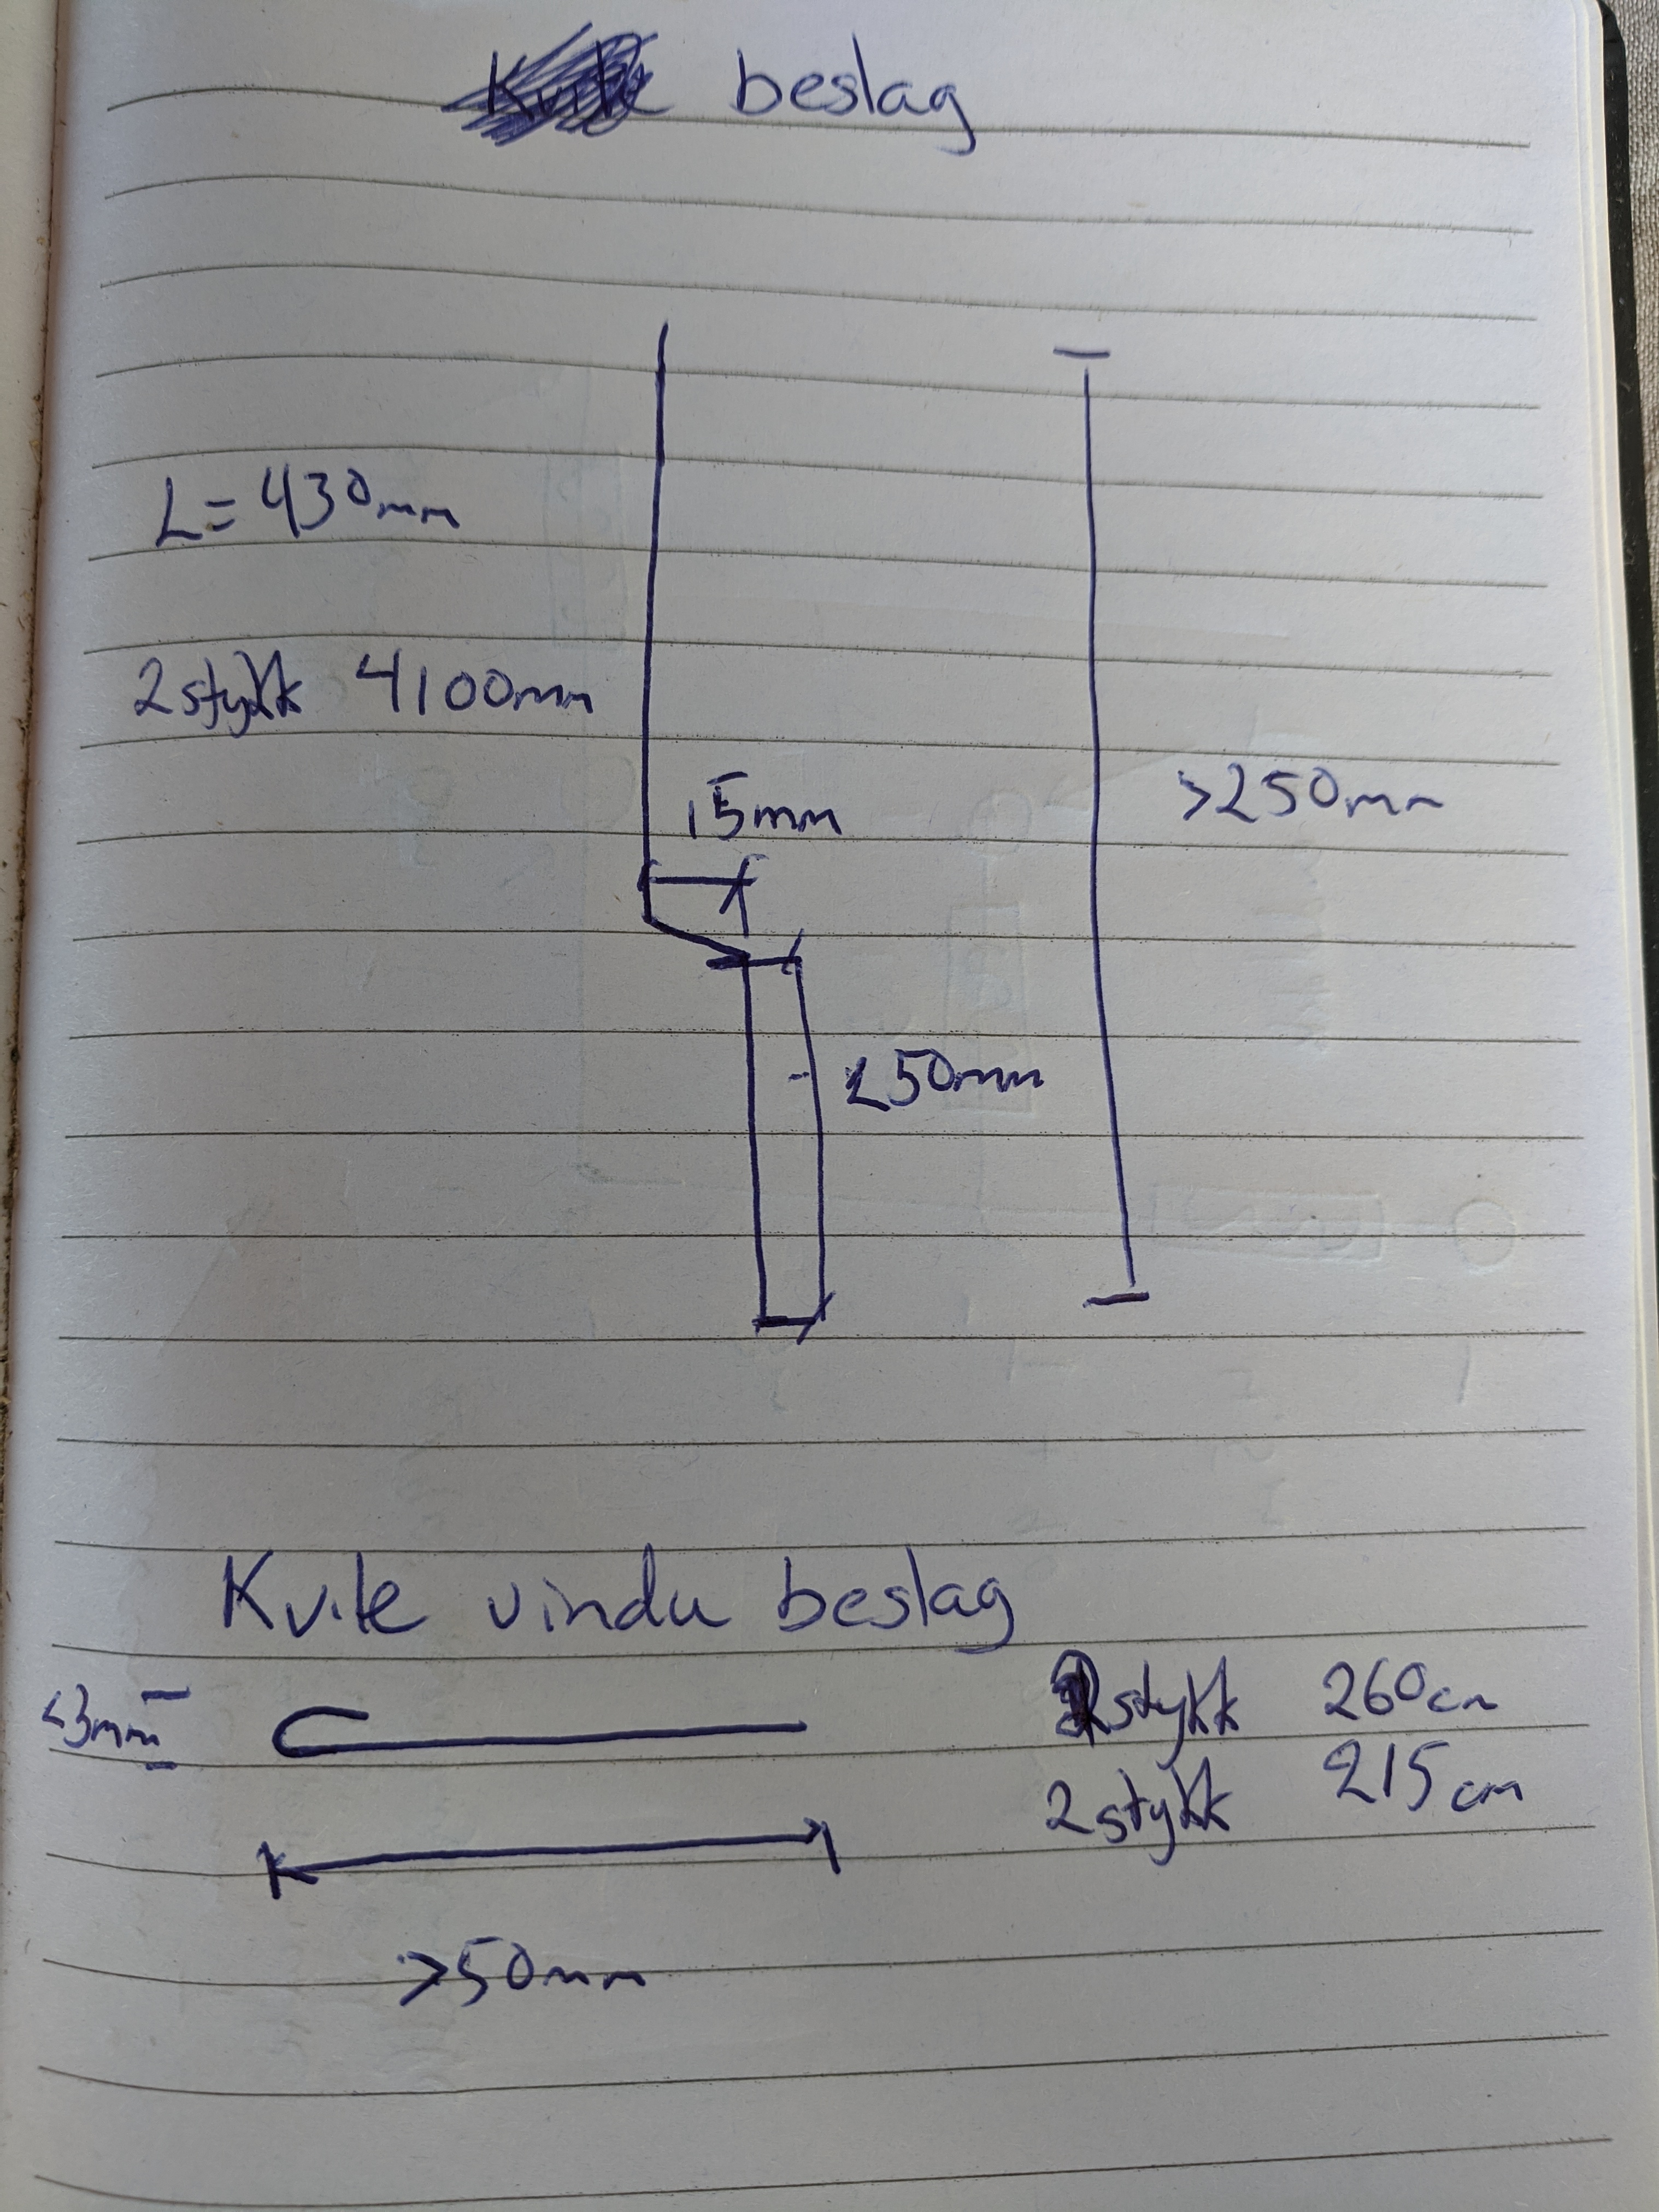 beslag
L=430mm
2stykk 4100mm
15mm
>250mm
150mm
Kvite vindu beslag
<3mm
stykk 260cm
2stykk 215cm
>50mm